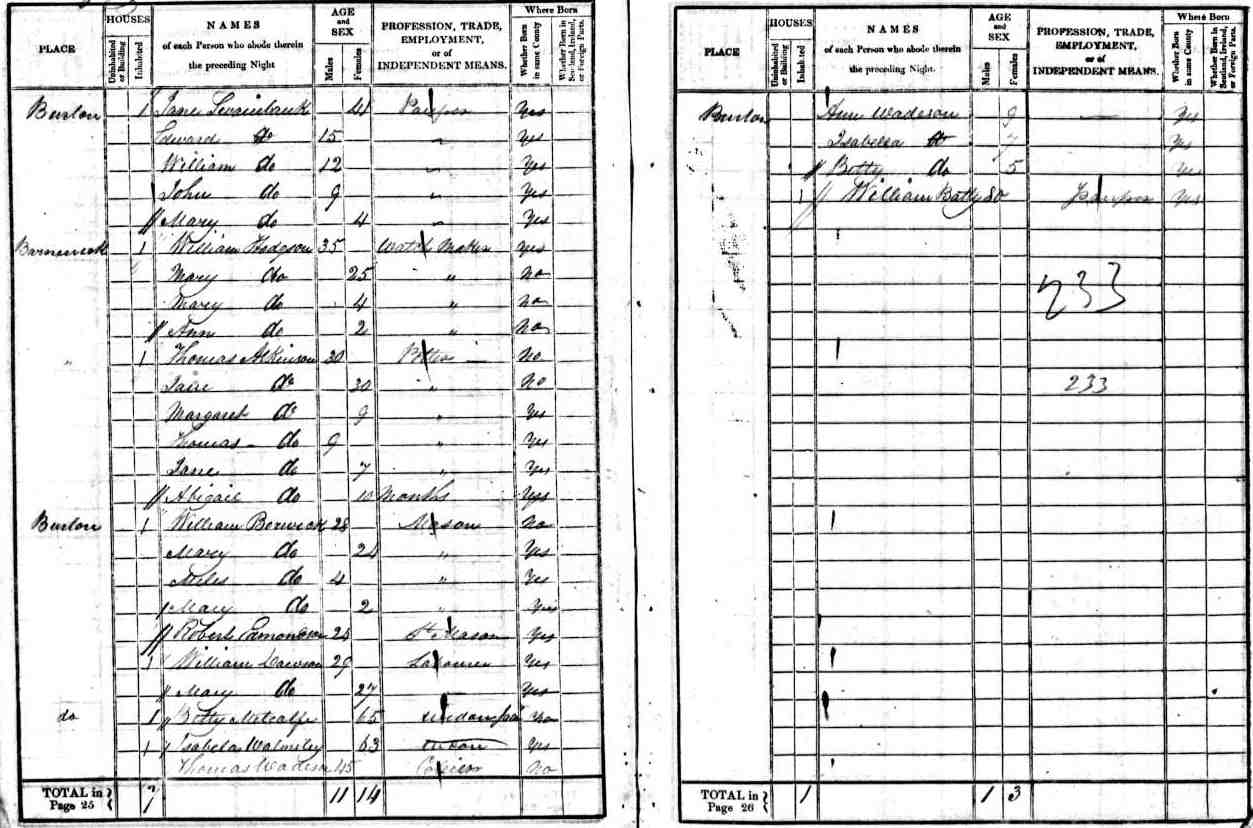 PLACE HOUSES Uninhabited or Building Inhabited NAMES of each Person who abode therein the preceding Night AGE and SEX Males Females PROFESSION, TRADE, EMPLOYMENT, or of INDEPENDENT MEANS. Where Born Whether Born in same County Whether Born in Scotland, Ireland, or Foreign Parts.
Burton 1 Jane 41 Pauper Yes
Edward do 15 " Yes
William do 12 " Yes
John do 9 " Yes
Mary do 4 " Yes
1 William Hodgson 35 Watch Maker Yes
Mary do 25 " No
Mary do 4 " No
Ann do 2 " No
" 1 Thomas Atkinson 30 No
Jane do 30 " No
Margaret do 9 " Yes
Thomas do 9 " Yes
Jane do 7 " Yes
Abigail do 10 Months Yes
Burton 1 William Berwick 28 Mason No
Mary do 24 " Yes
do 4 " Yes
Mary do 2 " Yes
Robert 25 Mason Yes
1 William Dawson 29 Labourer Yes
Mary do 27 Yes
do 1 Betty Metcalfe 65
1 Isabela Walmsley 63 Yes
Thomas Wadeson 45 No
TOTAL in Page 25 7 11 14
PLACE HOUSES Uninhabited or Building Inhabited NAMES of each Person who abode therein the preceding Night. AGE and SEX Males Females PROFESSION, TRADE, EMPLOYMENT, or of INDEPENDENT MEANS. Where Born Whether Born in same County Whether Born in Scotland, Ireland, or Foreign Parts.
Burton Ann Wadeson 9 Yes
Isabella do 7 Yes
Betty do 5 Yes
1 William Batty 80 Pauper Yes
233
233
TOTAL in Page 26 1 1 3